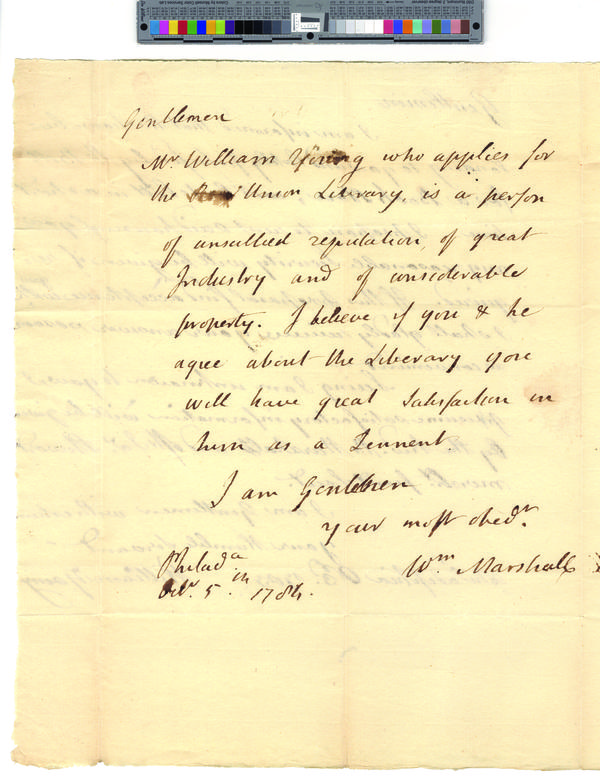 Gentlemen
Mr. William Young who applies for
the Union Library, is a person
of unsullied reputation, of great
Industry and of considerable
property. I believe if you & he
agree about the Liberary you
will have great Satisfaction in
him as a Tennent.
I am Gentlemen
your most obedt.
Wm Marshall
Philada.
Octr. 5th 1784.